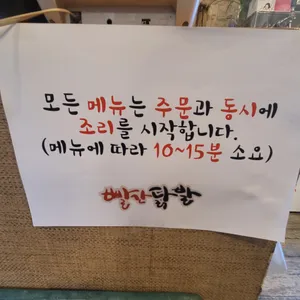 모든 메뉴는 주문과 동시에
조리를 시작합니다.
(메뉴에 따라 10~15분 소요)
빨간닭발